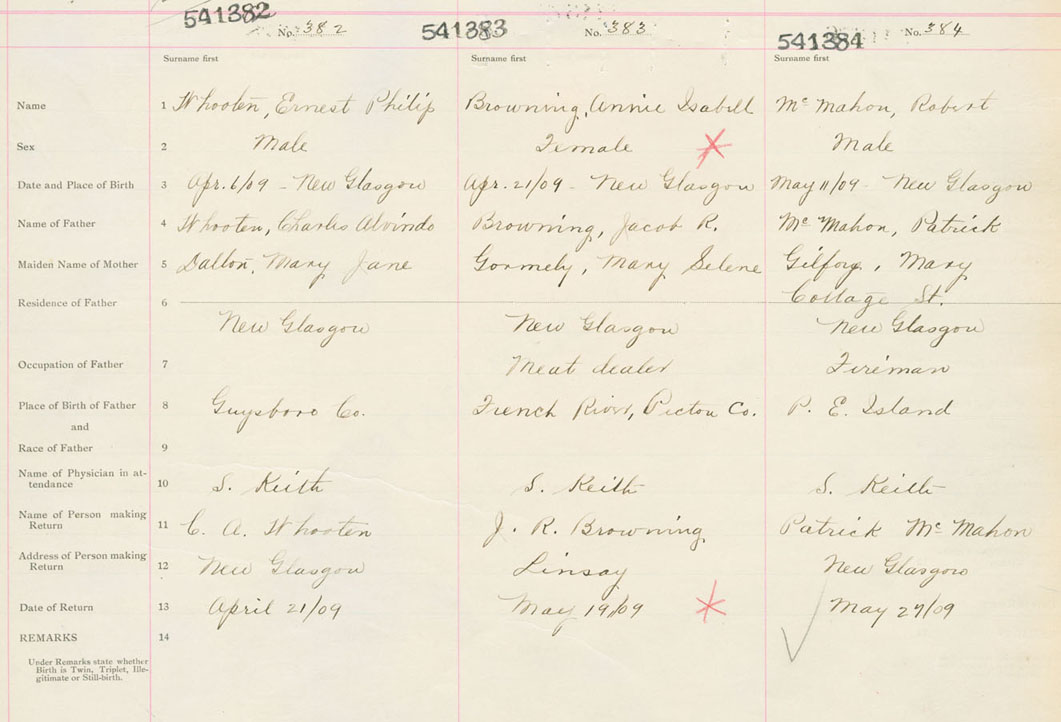 541382 No. 382 541383 No. 383 541384 No. 384
Surname first Surname first Surname first
Name 1 Whooten, Ernest Philip Browning, Annie Isabell Mc Mahon, Robert
Sex 2 Male Female Male
Date and Place of Birth 3 Apr. 6/09 - New Glasgow Apr. 21/09 - New Glasgow May 11/09 - New Glasgow
Name of Father 4 Whooten, Charles Alvindo Browning, Jacob R. Mc Mahon, Patrick
Maiden Name of Mother 5 Dalton, Mary Jane Gormely, Mary Selene Mary
Residence of Father 6 Cottage St.
New Glasgow New Glasgow New Glasgow
Occupation of Father 7 Meat dealer Fireman
Place of Birth of Father 8 Guysboro Co. French River, Pictou Co. P. E. Island
and
Race of Father 9
Name of Physician in at-
tendance 10 S. Keith S. Keith S. Keith
Name of Person making
Return 11 C. A. Whooten J. R. Browning Patrick Mc Mahon
Address of Person making
Return 12 New Glasgow Linsay New Glasgow
Date of Return 13 April 21/09 May 19/09 May 27/09
REMARKS 14
Under Remarks state whether
Birth is Twin, Triplet, Ille-
gitimate or Still-birth.